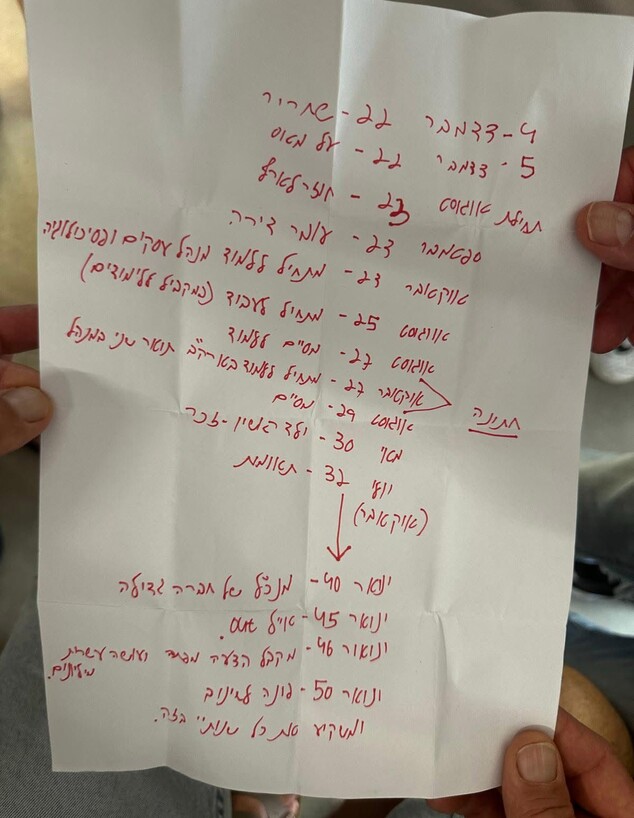 4 - דצמבר 22 - שחרור
5 - דצמבר 22 - על מאס
תחילת אוגוסט 23 - חוזר לארץ
ספטמבר 23 - עובר דירה.
אוקטובר 23 - מתחיל ללמוד מנהל עסקים ופסיכולוגיה
אוגוסט 25 - מתחיל לעבוד (במקביל ללימודים)
אוגוסט 27 - מסיים ללמוד
אוקטובר 27 - מתחיל ללמוד בארה"ב תואר שני במנהל
אוגוסט 29 - מסיים
חתונה
מאי 30 - ילד ראשון - זכר
יוני 32 - תאומות
(אוקטובר)
ינואר 40 - מנכ"ל של חברה גדולה
ינואר 45 -
ינואר 46 - מקבל הצעה מפחיד ועושה עשרות
מיליונים.
ינואר 50 - פונה לחינוך
ומשקיע את כל שנותיי בזה.